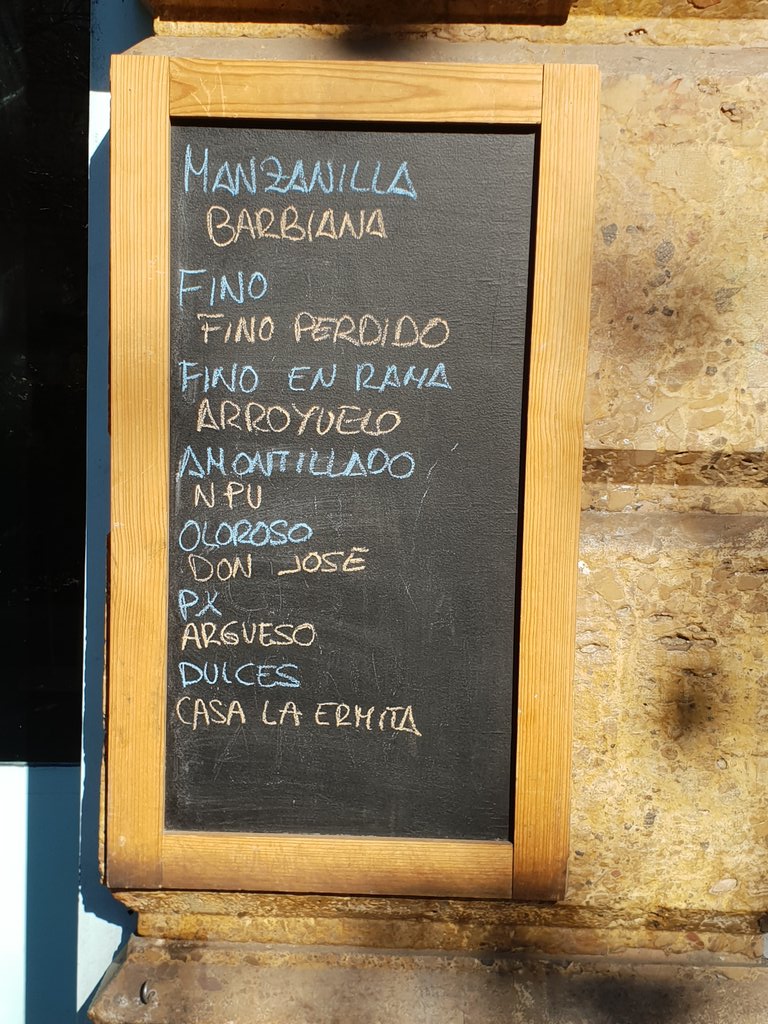 MANZANILLA
BARBIANA
FINO
FINO PERDIDO
FINO EN RAMA
ARROYUELO
AMONTILLADO
NPU
OLOROSO
DON JOSE
PX
ARGUESO
DULCES
CASA LA ERMITA